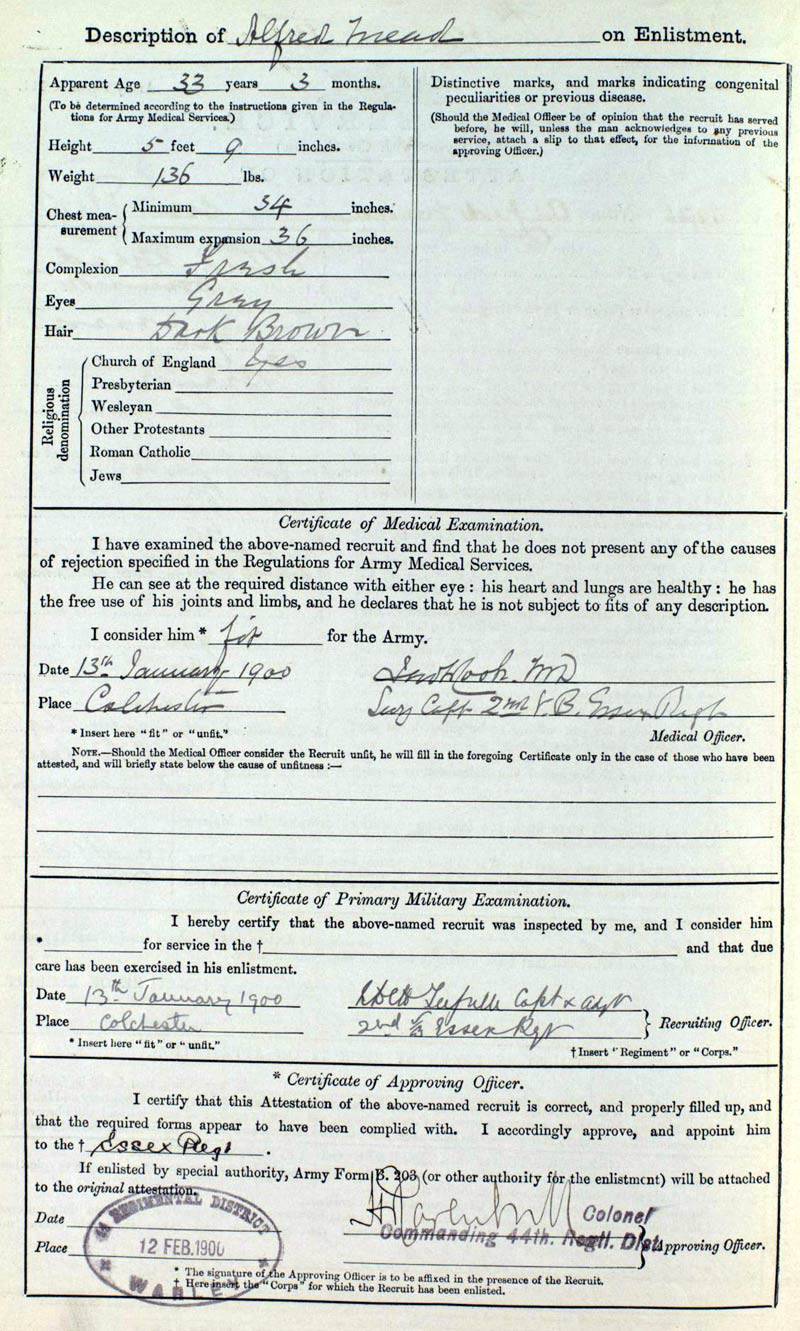 Description of Alfred Mead on Enlistment.
Apparent Age 33 years 3 months.
(To be determined according to the instructions given in the Regula-
tions for Army Medical Services.)
Height 5 feet 9 inches.
Weight 136 lbs.
Chest mea-
surement
Minimum 34 inches.
Maximum expansion 36 inches.
Complexion Fresh
Eyes Grey
Hair Dark Brown
Religious
denomination
Church of England Yes
Presbyterian
Wesleyan
Other Protestants
Roman Catholic
Jews
Distinctive marks, and marks indicating congenital
peculiarities or previous disease.
(Should the Medical Officer be of opinion that the recruit has served
before, he will, unless the man acknowledges to any previous
service, attach a slip to that effect, for the information of the
approving Officer.)
Certificate of Medical Examination.
I have examined the above-named recruit and find that he does not present any of the causes
of rejection specified in the Regulations for Army Medical Services.
He can see at the required distance with either eye : his heart and lungs are healthy : he has
the free use of his joints and limbs, and he declares that he is not subject to fits of any description.
I consider him * fit for the Army.
Date 13th January 1900
MD
Place Colchester
Surg Capt 2nd V.B. Essex Regt
* Insert here "fit" or "unfit."
Medical Officer.
NOTE.—Should the Medical Officer consider the Recruit unfit, he will fill in the foregoing Certificate only in the case of those who have been
attested, and will briefly state below the cause of unfitness :—
Certificate of Primary Military Examination.
I hereby certify that the above-named recruit was inspected by me, and I consider him
* for service in the † and that due
care has been exercised in his enlistment.
Date 13th January 1900
Capt & Adjt
Place Colchester
2nd VB Essex Regt
Recruiting Officer.
* Insert here "fit" or "unfit."
† Insert "Regiment" or "Corps."
* Certificate of Approving Officer.
I certify that this Attestation of the above-named recruit is correct, and properly filled up, and
that the required forms appear to have been complied with. I accordingly approve, and appoint him
to the † Essex Regt.
If enlisted by special authority, Army Form B. 203 (or other authority for the enlistment) will be attached
to the original attestation.
Date
Colonel
Commanding 44th. Regtl. Dist.
Place
Approving Officer.
44 REGIMENTAL DISTRICT
12 FEB.1900
WARLEY
* The signature of the Approving Officer is to be affixed in the presence of the Recruit.
† Here insert the "Corps" for which the Recruit has been enlisted.